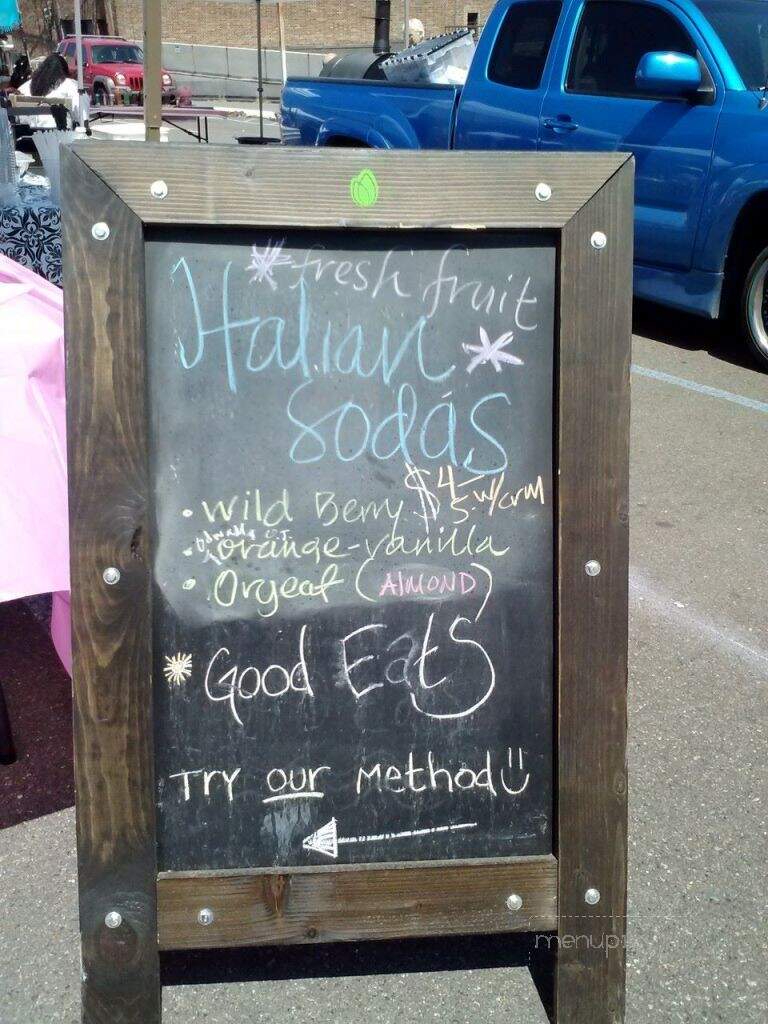 *fresh fruit
Italian *
sodas
• Wild Berry $4
5- w/crm
• orange-vanilla
• Orgeat (ALMOND)
* Good EatS
TRY our Method
menupix